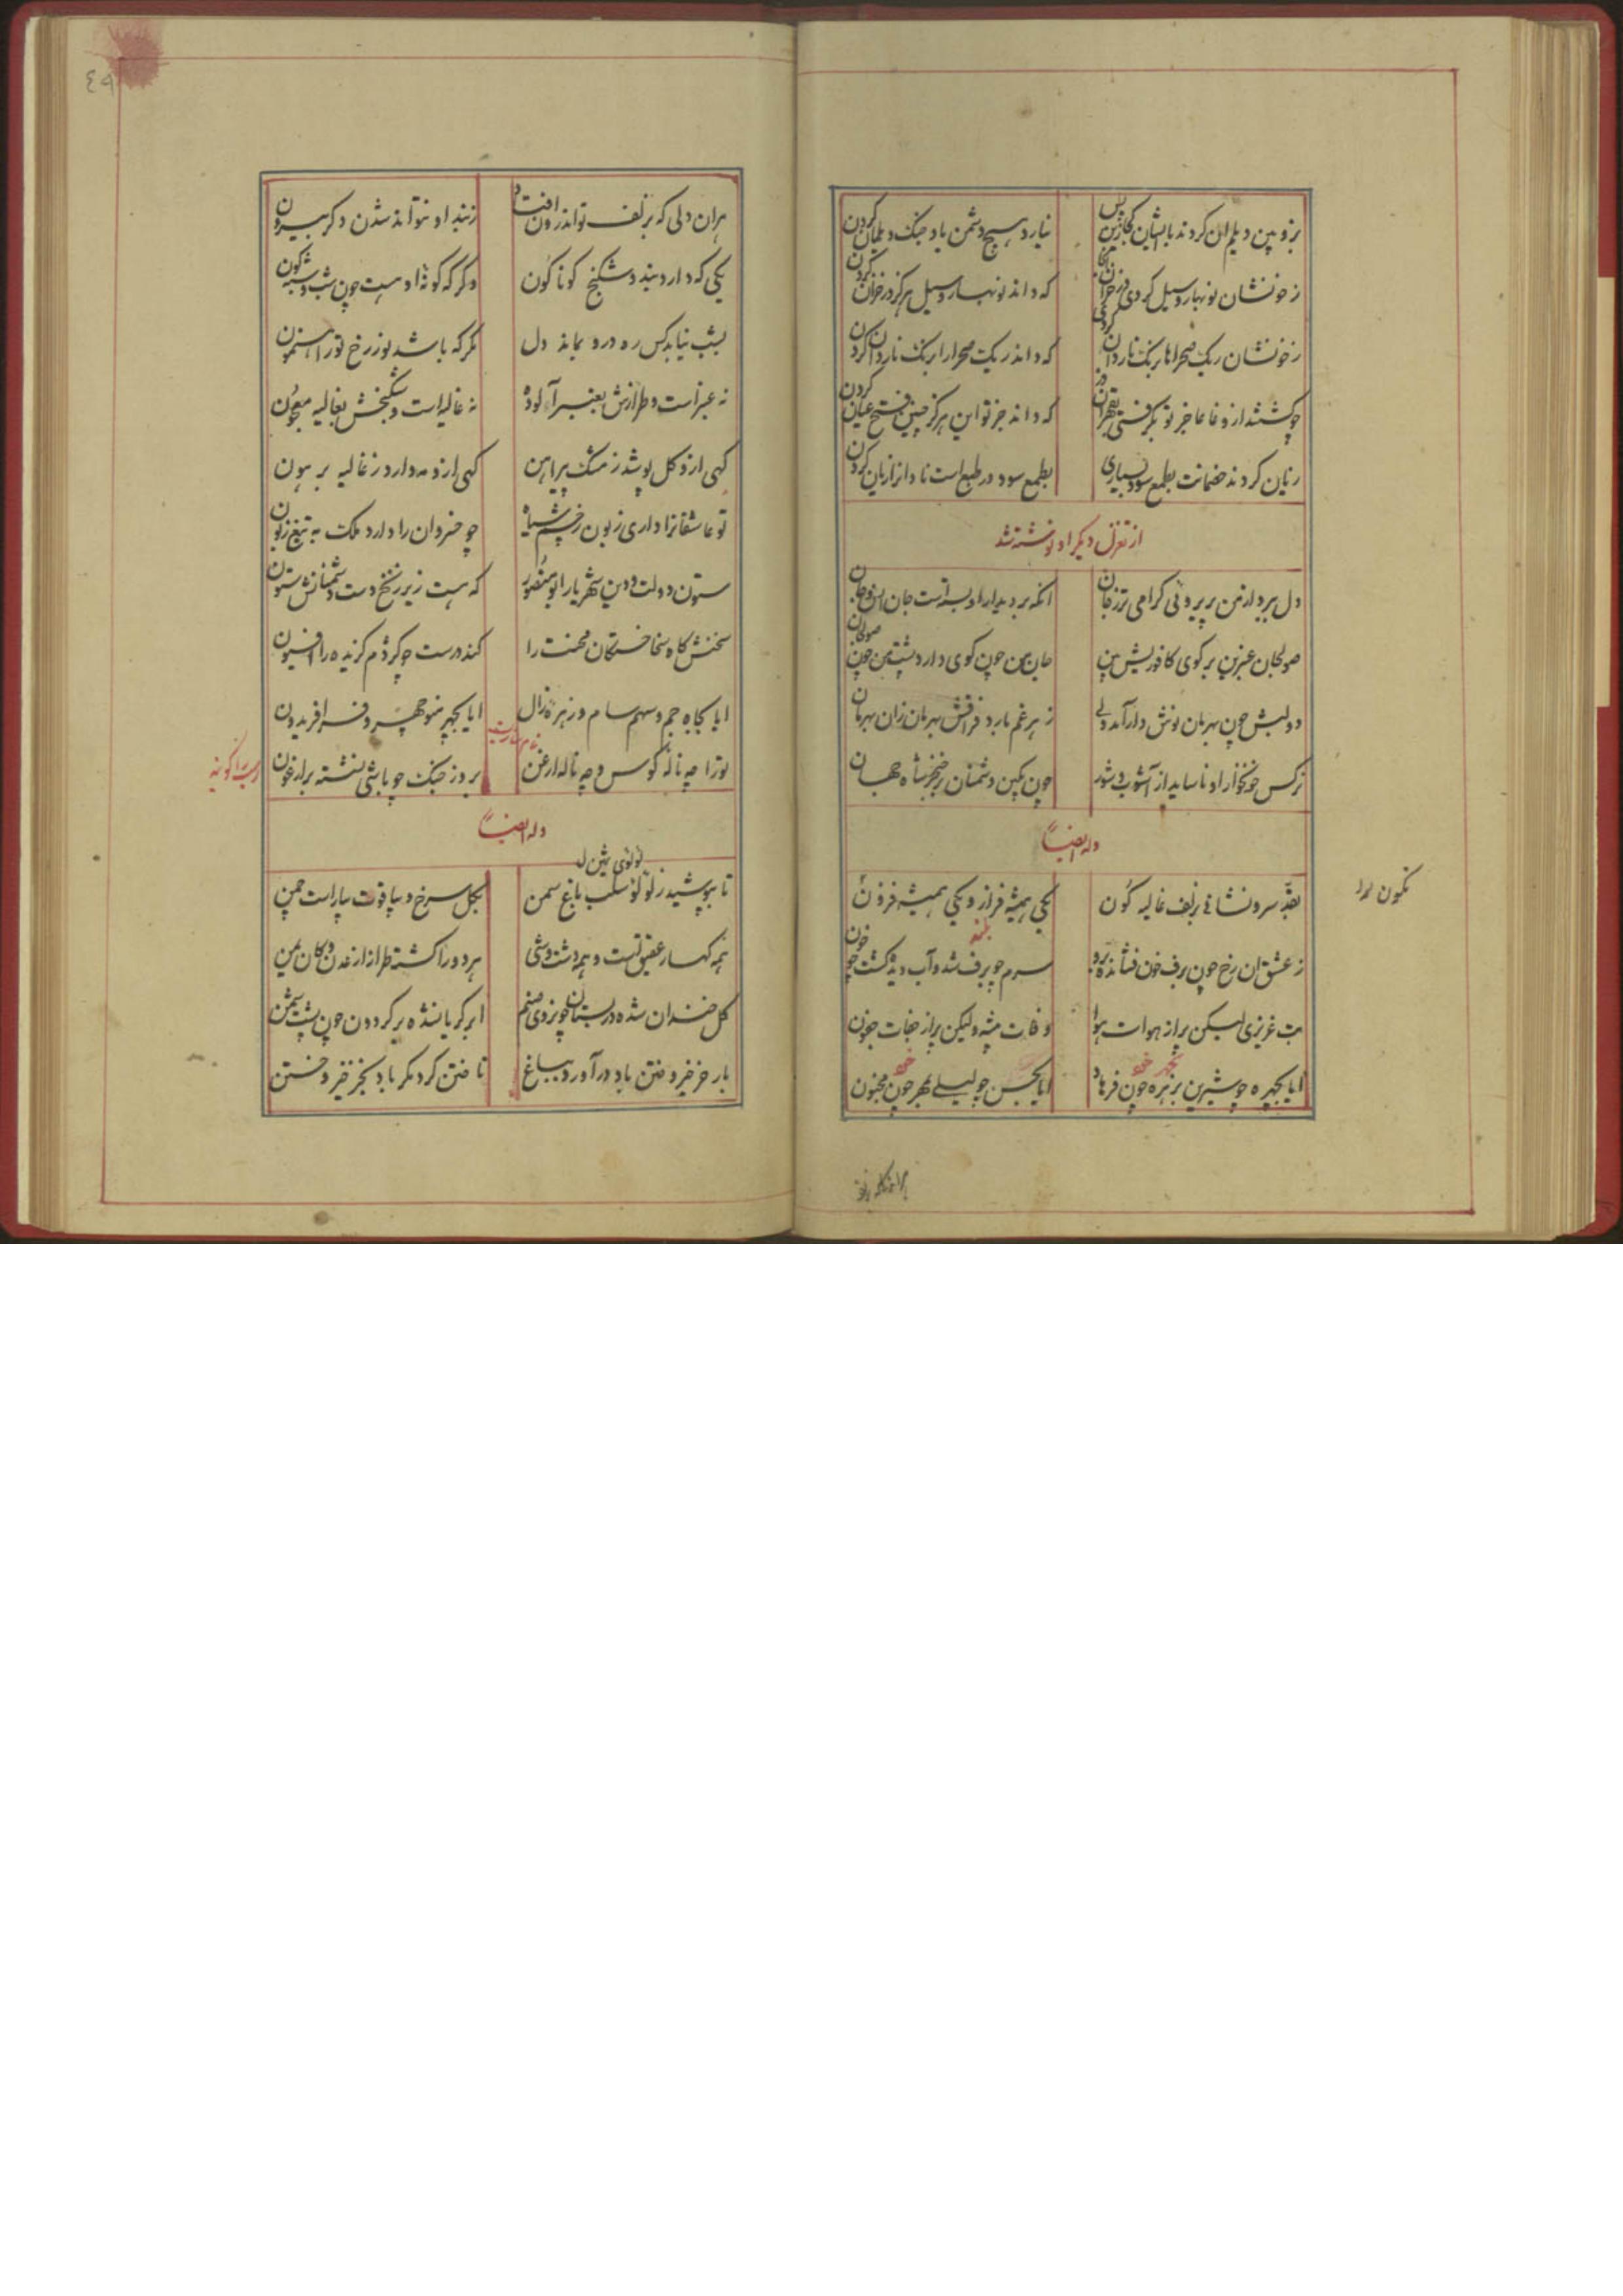 بزوبین دیلم ان کردند با ایشان کجا زین پس
نیارد هیچ دشمن یاد جنک دیلمان کردن
ز خونشان نوبهار و سیل کردی در خزان
که داند نوبهار و سیل هرکز در خزان کردن
ز خونشان ریک صحراها برنک ناردان کردی
که داند ریک صحرا را برنک ناردان کردن
چو کشتند از وغا عاجز تو بکرفتی بقهر
که داند جز تو این هرکز چنین فتح عیان کردن
زیان کردند ضمانت بطمع سود بسیاری
بطمع سود در طبع است نادانرا زیان کردن
از تغزل دیکر او نوشته شد
دل ببرد از من پریروئی کرامی تر ز جان
انکه بر دیدار او بسته است جان انس و جان
صولجان عنبرین بر کوی کافوریش بین
جان من چون کوی دارد پشت من چون صولجان
دو لبش چون بهرمان نوش دار آمد ولی
زهر غم بارد فراقش بهرمان زان بهرمان
نرکس خونخوار او ناساید از آشوب و شور
چون بکین دشمنان بر خنجر شاه جهان
وله ایضاً
بقد سرو نشانی بزلف غالیه کون
یکی همیشه فراز و یکی همیشه فزون
نکون
ز عشق ان رخ چون برف خون فشانده برو
سرم چو برف شد و آب دیده کشت چو خون
بت عزیزی لیکن براز هوات هوا
وفات پیشه ولیکن پراز جفات جفون
ایا بچهره چو شیرین بزهره چون فرهاد
ایا بحسن چو لیلی بمهر چون مجنون
٤٩
هران دلی که بزلف تو اندرون افتد
ز بند او نتواند شدن دکر بیرون
یکی که دارد بند و شکنج کوناکون
دکر که کونۀ او هست چون شب شبه کون
بشب نیابد کس ره درو بماند دل
مکر که باشد نور رخ تو راهنمون
نه عنبر است و طرازش بعنبر آلوده
نه غالیه است و شکنجش بغالیه معجون
کهی ازو کل پوشد ز مشک پیراهن
کهی ازو مه دارد ز غالیه پرهون
تو عاشقانرا داری زبون ز چشم سیاه
چو خسروان را دارد ملک به تیغ زبون
ستون دولت و دین شهریار ابو منصور
که هست زیر زنخ دست دشمنانش ستون
سخنش کاه سخا خستکان محنت را
کند درست چو کژدم کزیده را افسون
ایا بجاه جم و سهم سام و زهره زال
ایا بچهر منوچهر و فر افریدون
تو را چه نالۀ کوس و چه نالۀ ارغن
بروز جنک چو باشی نشسته بر ارغون
وله ایضاً
لولوی ثمین
تا بپوشید ز لولو سلب باغ سمن
بکل سرخ و بیاقوت بیاراست چمن
همه کهسار عقیق است و همه دشت وشی
هر دو را کشته طراز از عدن و کان یمن
کل خندان شده در بستان چون روی صنم
ابر کریانشده بر کردون چون پشت شمن
بار خرخیز و ختن باد در آورد بباغ
تاختن کرد مکر باد بخرخیز و ختن